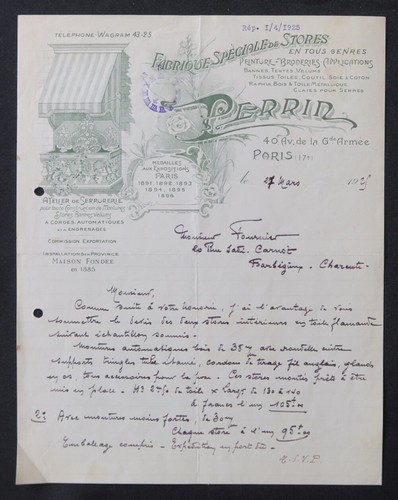 TELEPHONE-WAGRAM 43-85
Rép. 1/4/1925
FABRIQUE SPÉCIALE DE STORES
EN TOUS GENRES
PEINTURE-BRODERIES APPLICATIONS
BANNES, TENTES, VELUMS
TISSUS, TOILES, COUTIL, BOIS & COTON
RAPHIA, BOIS & TOILE MÉTALLIQUE
CLAIES POUR SERRES
PERRIN
40 Av. de la Gde Armée
PARIS (17e)
MÉDAILLES
AUX EXPOSITIONS
PARIS
1891, 1892, 1893
1894, 1895
1896
le 27 Mars 1925
ATELIER DE SERRURERIE
pour toute Construction de Montures
Stores, Bannes, Vélums
A CORDES, AUTOMATIQUES
aux ENGRENAGES
COMMISSION EXPORTATION
INSTALLATIONS en PROVINCE
MAISON FONDÉE
en 1885
Monsieur Fournier
20 Rue Sadi-Carnot
Barbézieux - Charente
Monsieur,
Comme suite à votre honorée, j'ai l'avantage de vous
soumettre le devis des deux stores intérieurs en toile flamande
suivant échantillon soumis -
Montures automatiques bois de 35 m/m avec rondelles entre
supports tringles tube cordons de tirage fil anglais, glands
en os, tous accessoires pour la pose - Ces stores montés prêts à être
mis en place - de toile x larg. de 130 à 140
à francs l'un 105 "
2° Avec montures moins fortes, de 30 m/m
Chaque store à l'un 95 "
Emballage compris - Expédition en port dû -
T.S.V.P.